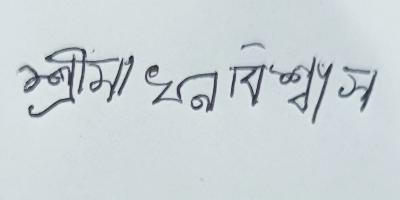 শ্রীমাখন বিশ্বাস